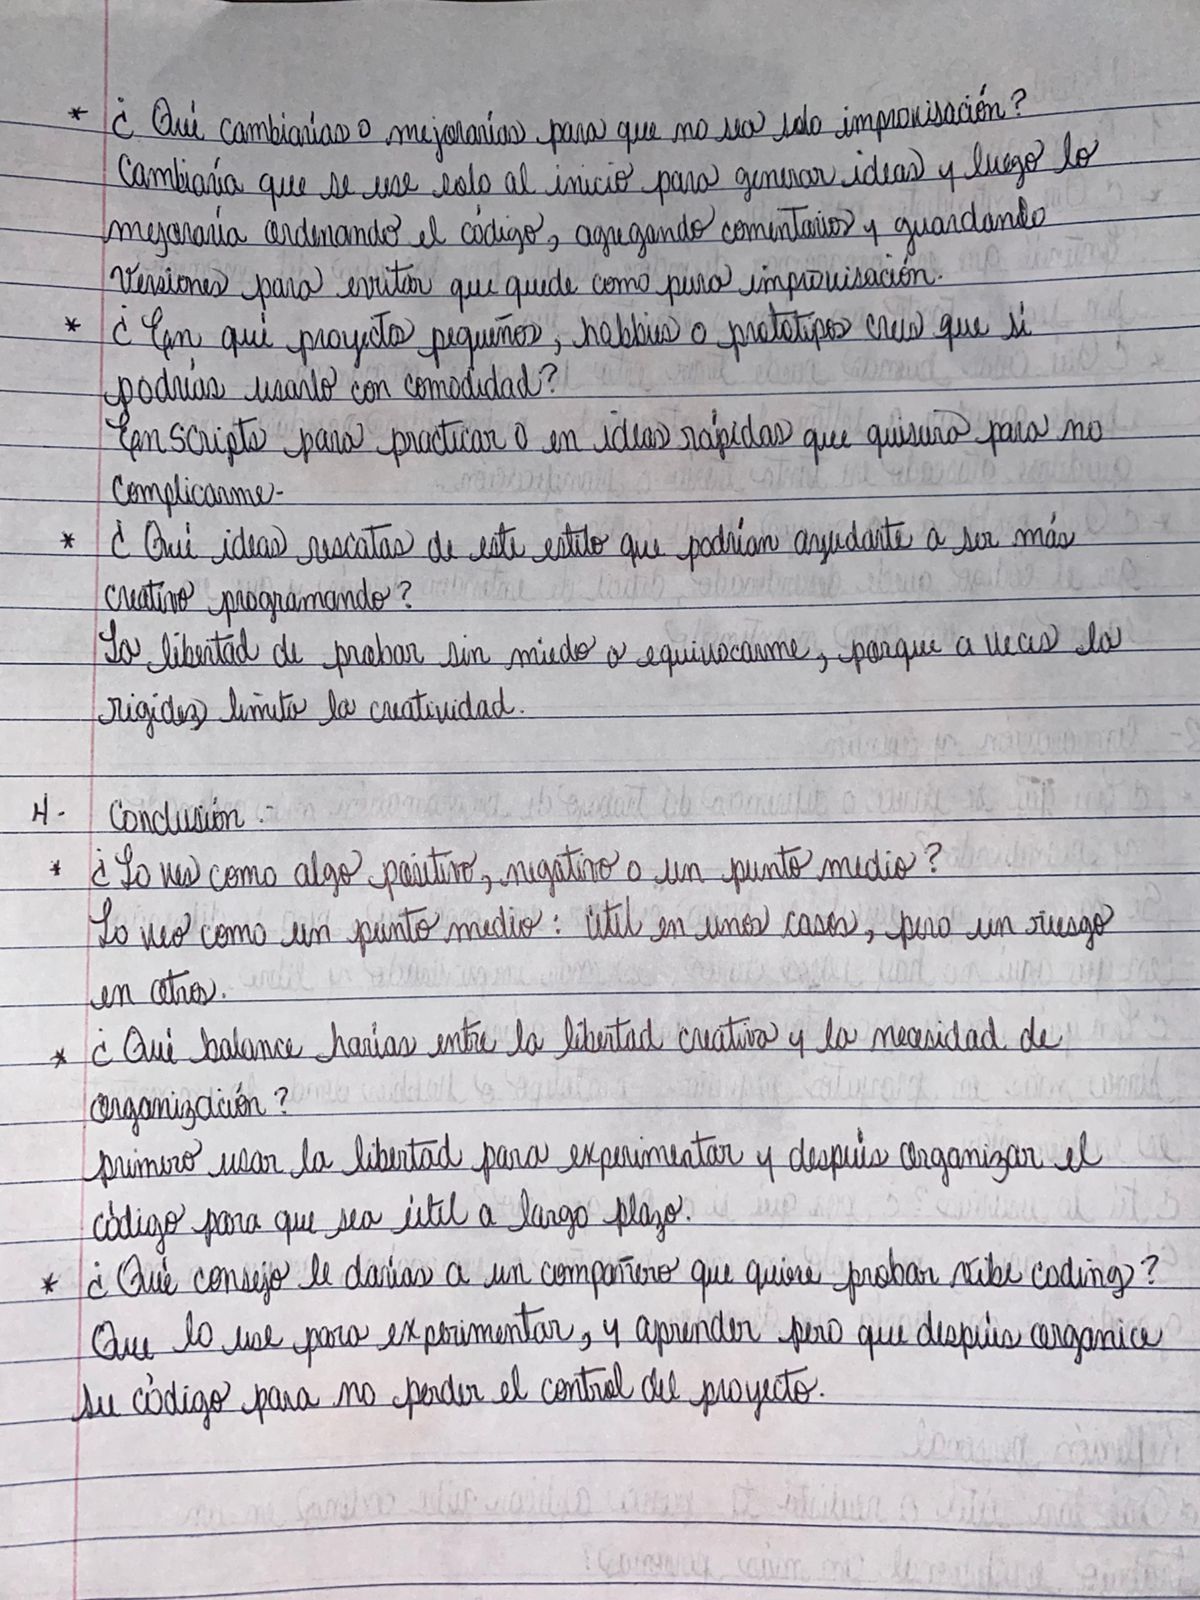 * ¿Qué cambiarías o mejorarías para que no sea solo improvisación?
Cambiaría que se use solo al inicio para generar ideas y luego lo
mejoraría ordenando el código, agregando comentarios y guardando
versiones para evitar que quede como pura improvisación.
* ¿En qué proyectos pequeños, hobbies o prototipos crees que si
podrías usarlo con comodidad?
En scripts para practicar o en ideas rápidas que quisiera para no
complicarme-
* ¿Qué ideas rescatas de este estilo que podrían ayudarte a ser más
creativo programando?
La libertad de probar sin miedo a equivocarme, porque a veces la
rigidez limita la creatividad.
4- Conclusión:-
* ¿Lo ves como algo positivo, negativo o un punto medio?
Lo veo como un punto medio: útil en unos casos, pero un riesgo
en otros.
* ¿Qué balance harías entre la libertad creativa y la necesidad de
organización?
primero usar la libertad para experimentar y después organizar el
código para que sea útil a largo plazo.
* ¿Qué consejo le darías a un compañero que quiere probar vibe coding?
Que lo use para experimentar, y aprender pero que después organice
su código para no perder el control del proyecto.